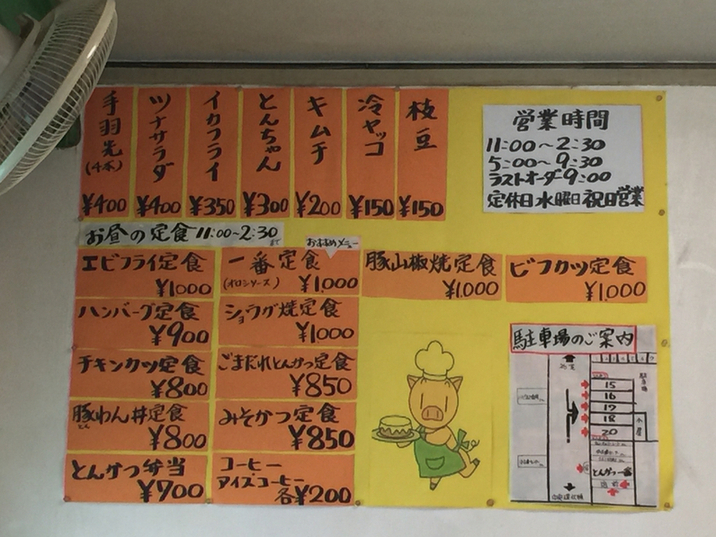 枝豆
¥150
冷ヤッコ
¥150
キムチ
¥200
とんちゃん
¥300
イカフライ
¥350
ツナサラダ
¥400
手羽先
(4本)
¥400
営業時間
11:00〜2:30
5:00〜9:30
ラストオーダ9:00
定休日水曜日祝日営業
お昼の定食11:00〜2:30まで
おすすめメニュー
エビフライ定食
¥1,000
一番定食
¥1,000
豚山椒焼定食
¥1,000
ビフカツ定食
¥1,000
ハンバーグ定食
¥900
ショウガ焼定食
¥1,000
チキンカツ定食
¥800
ごまだれとんかつ定食
¥850
豚わん丼定食
とん
¥800
みそかつ定食
¥850
とんかつ弁当
¥700
コーヒー
アイスコーヒー
各¥200
駐車場のご案内
15
16
17
18
20
とんかつ一番